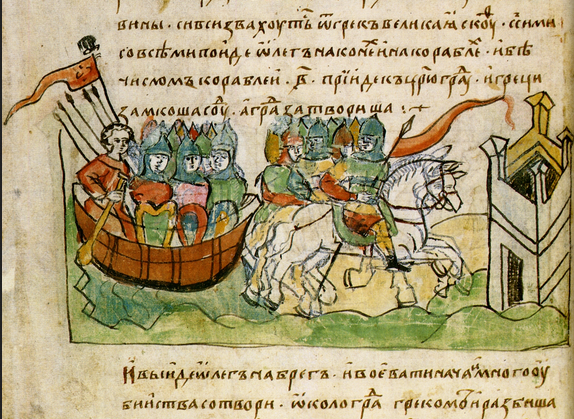 вины · си вси звахоуть ѿ грекъ великаꙗ скоуⷴ · с сими
со всѣми поиде ѿлегъ на конеⷯ и на кораблеⷯ · и бѣ
числомъ кораблеи · в҃ · прїиде къ цр҃юграⷣ · и греци
замкоша соуⷣ · а граⷣ затвориша :+
И выиде ѿлегъ на брегъ · и воевати нача и много оу
бииства сотвори · ѿколо граⷣ грекомъ и разбиша